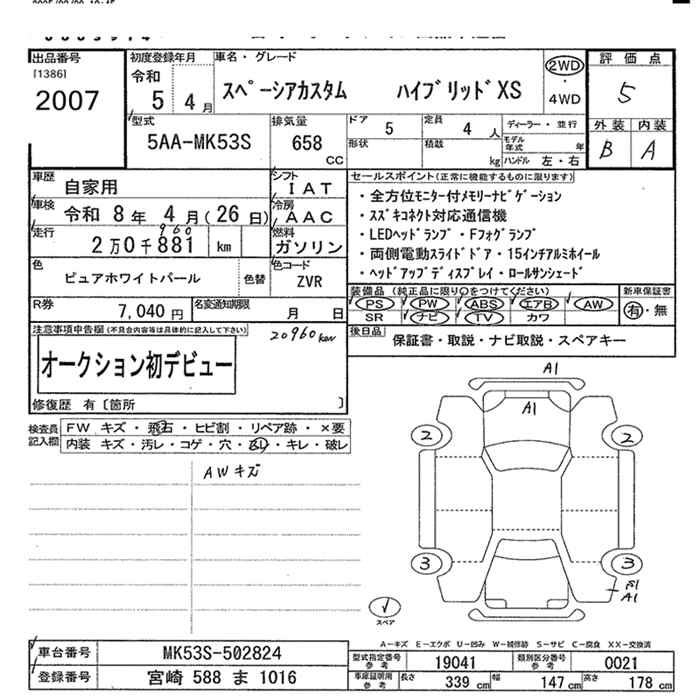 出品番号
[1386]
2007
初度登録年月
令和
5 4 月
車名・グレード
スペーシアカスタム ハイブリッドXS
2WD
・
4WD
評価点
5
外装 内装
B A
型式
5AA-MK53S
排気量
658
CC
ドア 5
定員 4 人
形状
積載 kg
ディーラー・並行
モデル年式 年
ハンドル 左・右
車歴
自家用
シフト
IAT
車検
令和 8年 4月(26日)
冷房
AAC
走行
960
2万0千881 km
燃料
ガソリン
色
ピュアホワイトパール
色替
色コード
ZVR
R券
7,040 円
名変通知期限
月 日
セールスポイント(正常に機能するものに限ります)
・全方位モニター付メモリーナビゲーション
・スズキコネクト対応通信機
・LEDヘッドランプ・Fフォグランプ
・両側電動スライドドア・15インチアルミホイール
・ヘッドアップディスプレイ・ロールサンシェード
装備品 (純正品に限り○をつけてください)
PS PW ABS エアB AW
SR ナビ TV カワ
新車保証書
有・無
後日品
保証書・取説・ナビ取説・スペアキー
注意事項申告欄(不具合内容等は具体的に記入して下さい)
20960km
オークション初デビュー
修復歴 有〔箇所 〕
検査員
記入欄
FW キズ・飛石・ヒビ割・リペア跡・×要
内装 キズ・汚レ・コゲ・穴・スレ・キレ・破レ
AWキズ
A1
A1
2 2
3 3
A1
スペア
A-キズ E-エクボ U-凹み W-補修跡 S-サビ C-腐食 XX-交換済
車台番号
MK53S-502824
登録番号
宮崎 588 ま 1016
型式指定番号
参考
19041
類別区分番号
参考
0021
車庫証明用
参考
長さ 339 cm
幅 147 cm
高さ 178 cm